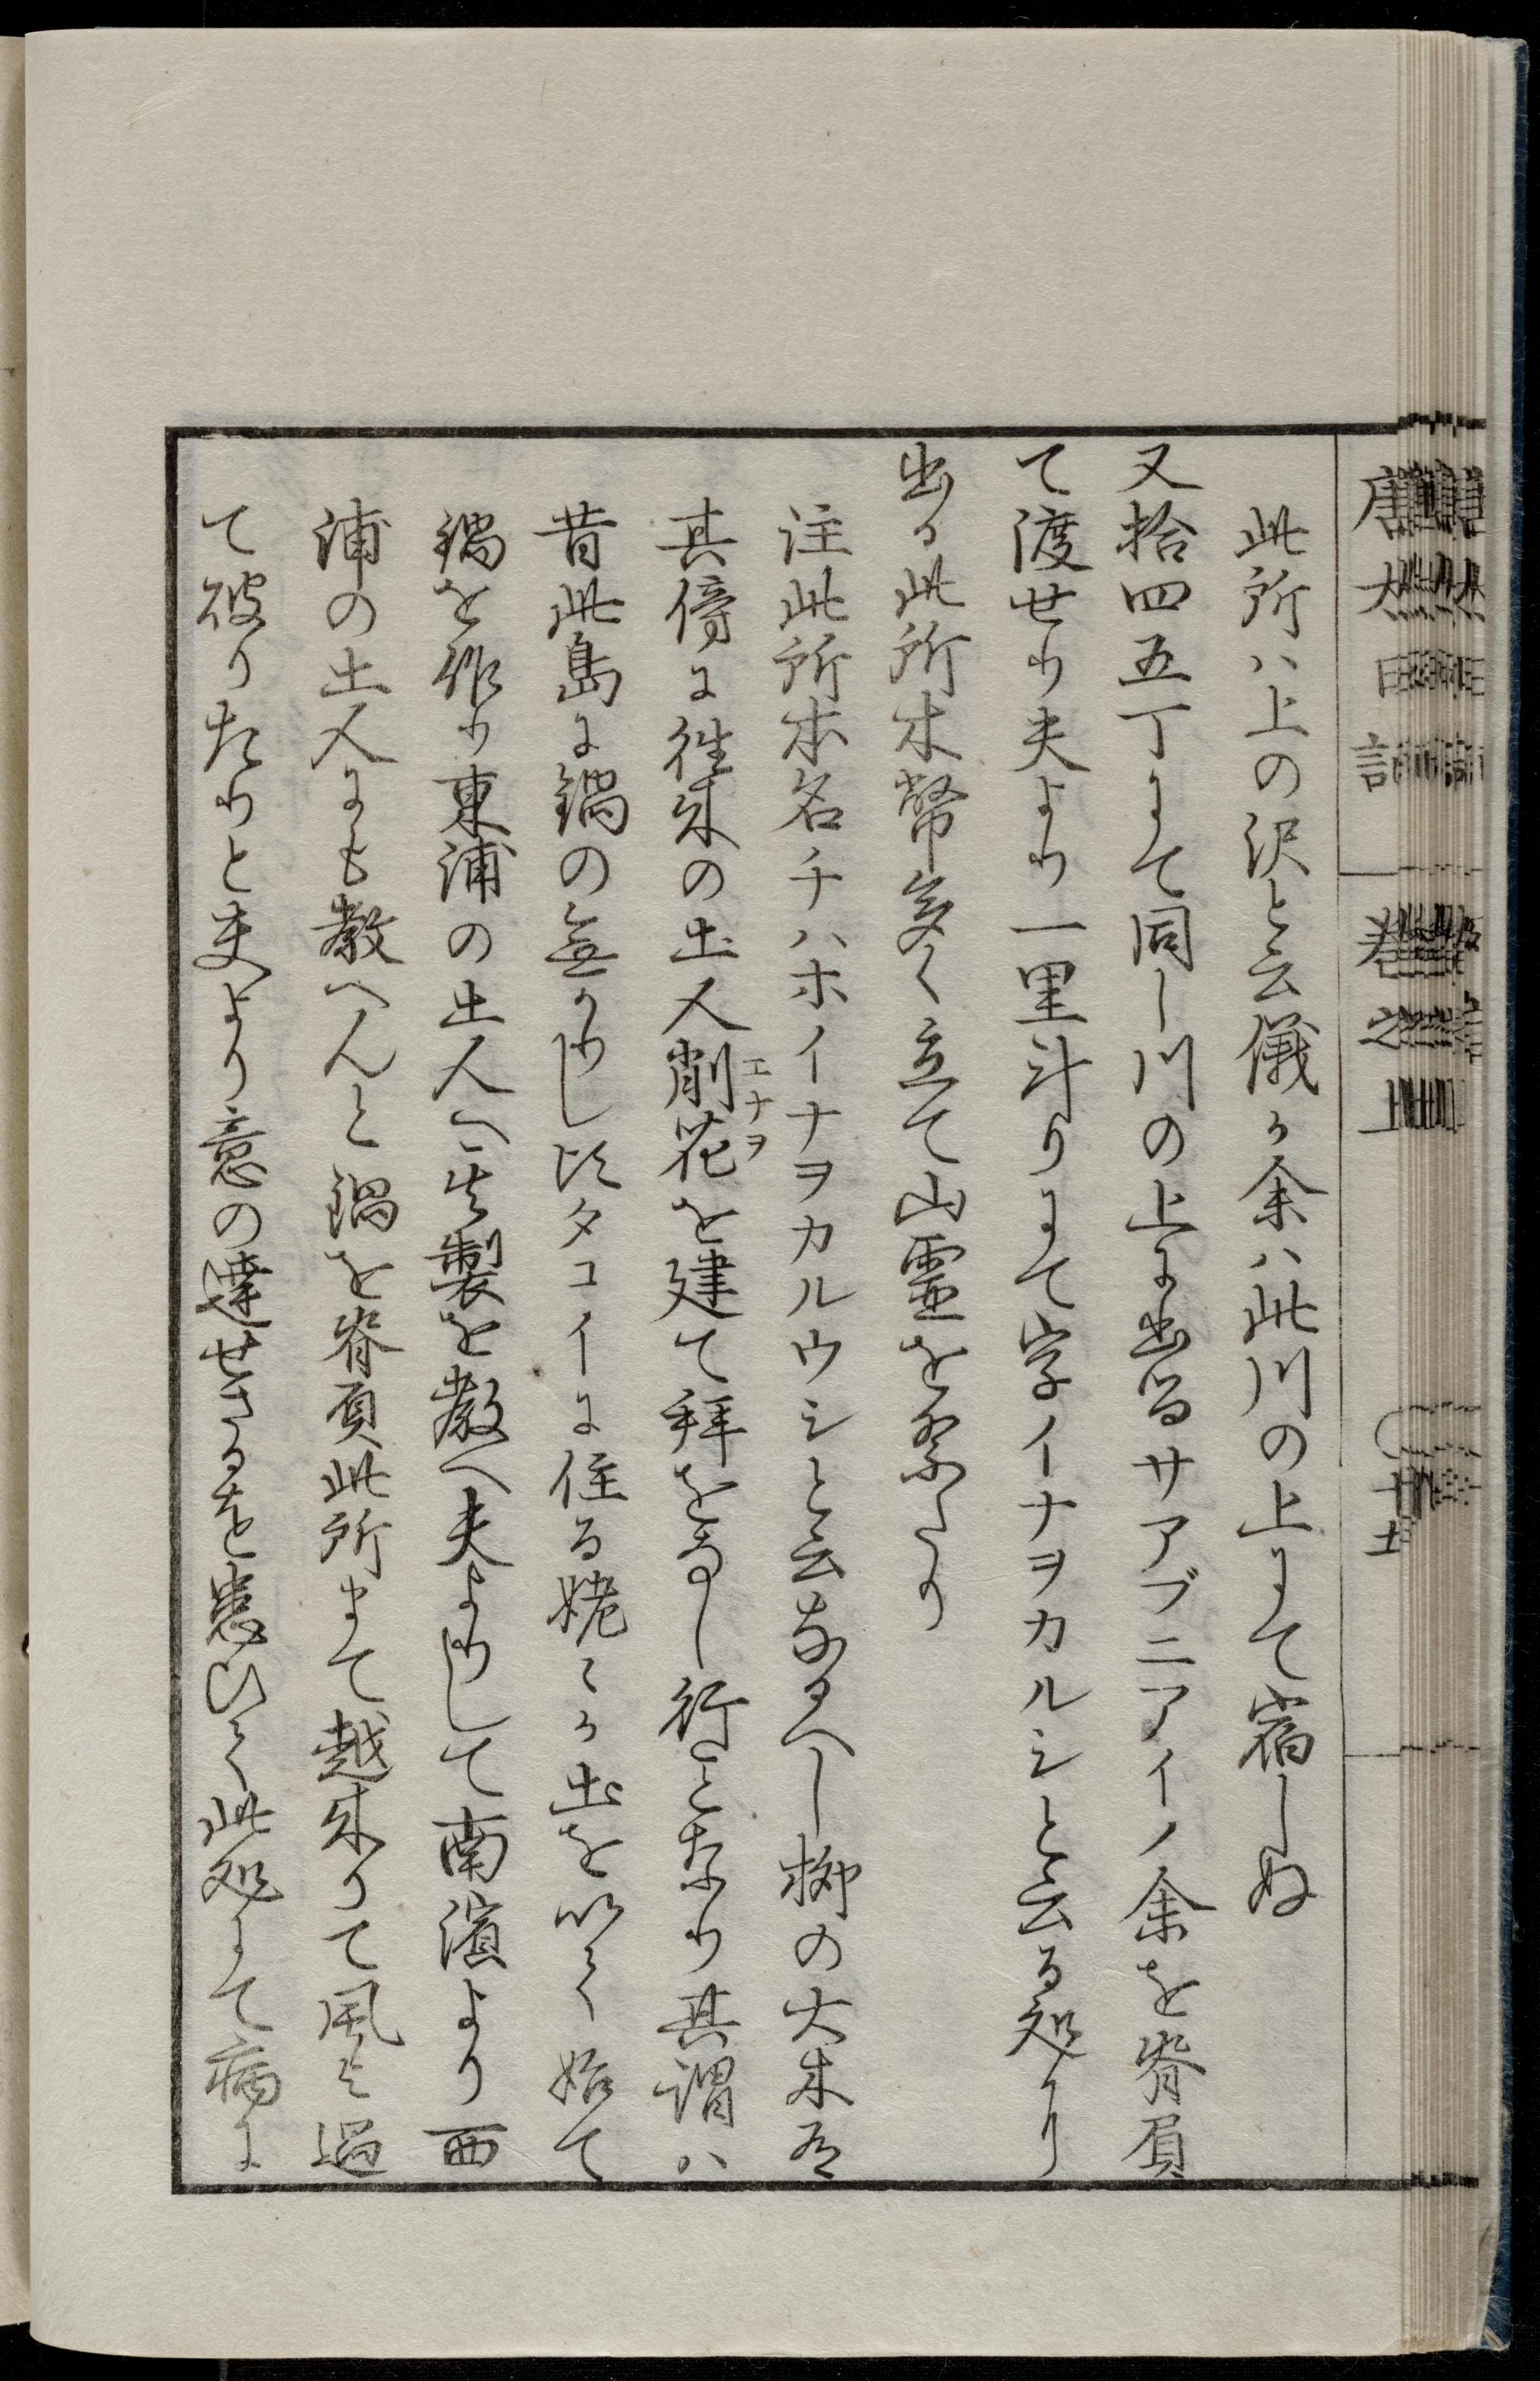 唐太日記 巻之上 〇十七
此所ハ上の沢と云儀か余ハ此川の上にて宿しぬ
又拾四五丁にて同し川の上に出るサアブニアイノ余を脊負
て渡せり夫より一里斗りにて字イナヲカルシと云る処に
出る此所木幣多く立て山霊を祭たり
注此所本名チハホイナヲカルウシと云なるへし柳の大木有
其傍に往来の土人削花を建て拝をなし行となり其謂ハ
エナヲ
昔此島に鍋の無かりし比タコイに住る姥々か土を以て始て
鍋を作り東浦の土人へ其製を教へ夫よりして南濱より西
浦の土人にも教へんと鍋を脊負此所まて越来りて風と過
て破りたりと夫より意の達せさるを患ひて此処にて病に